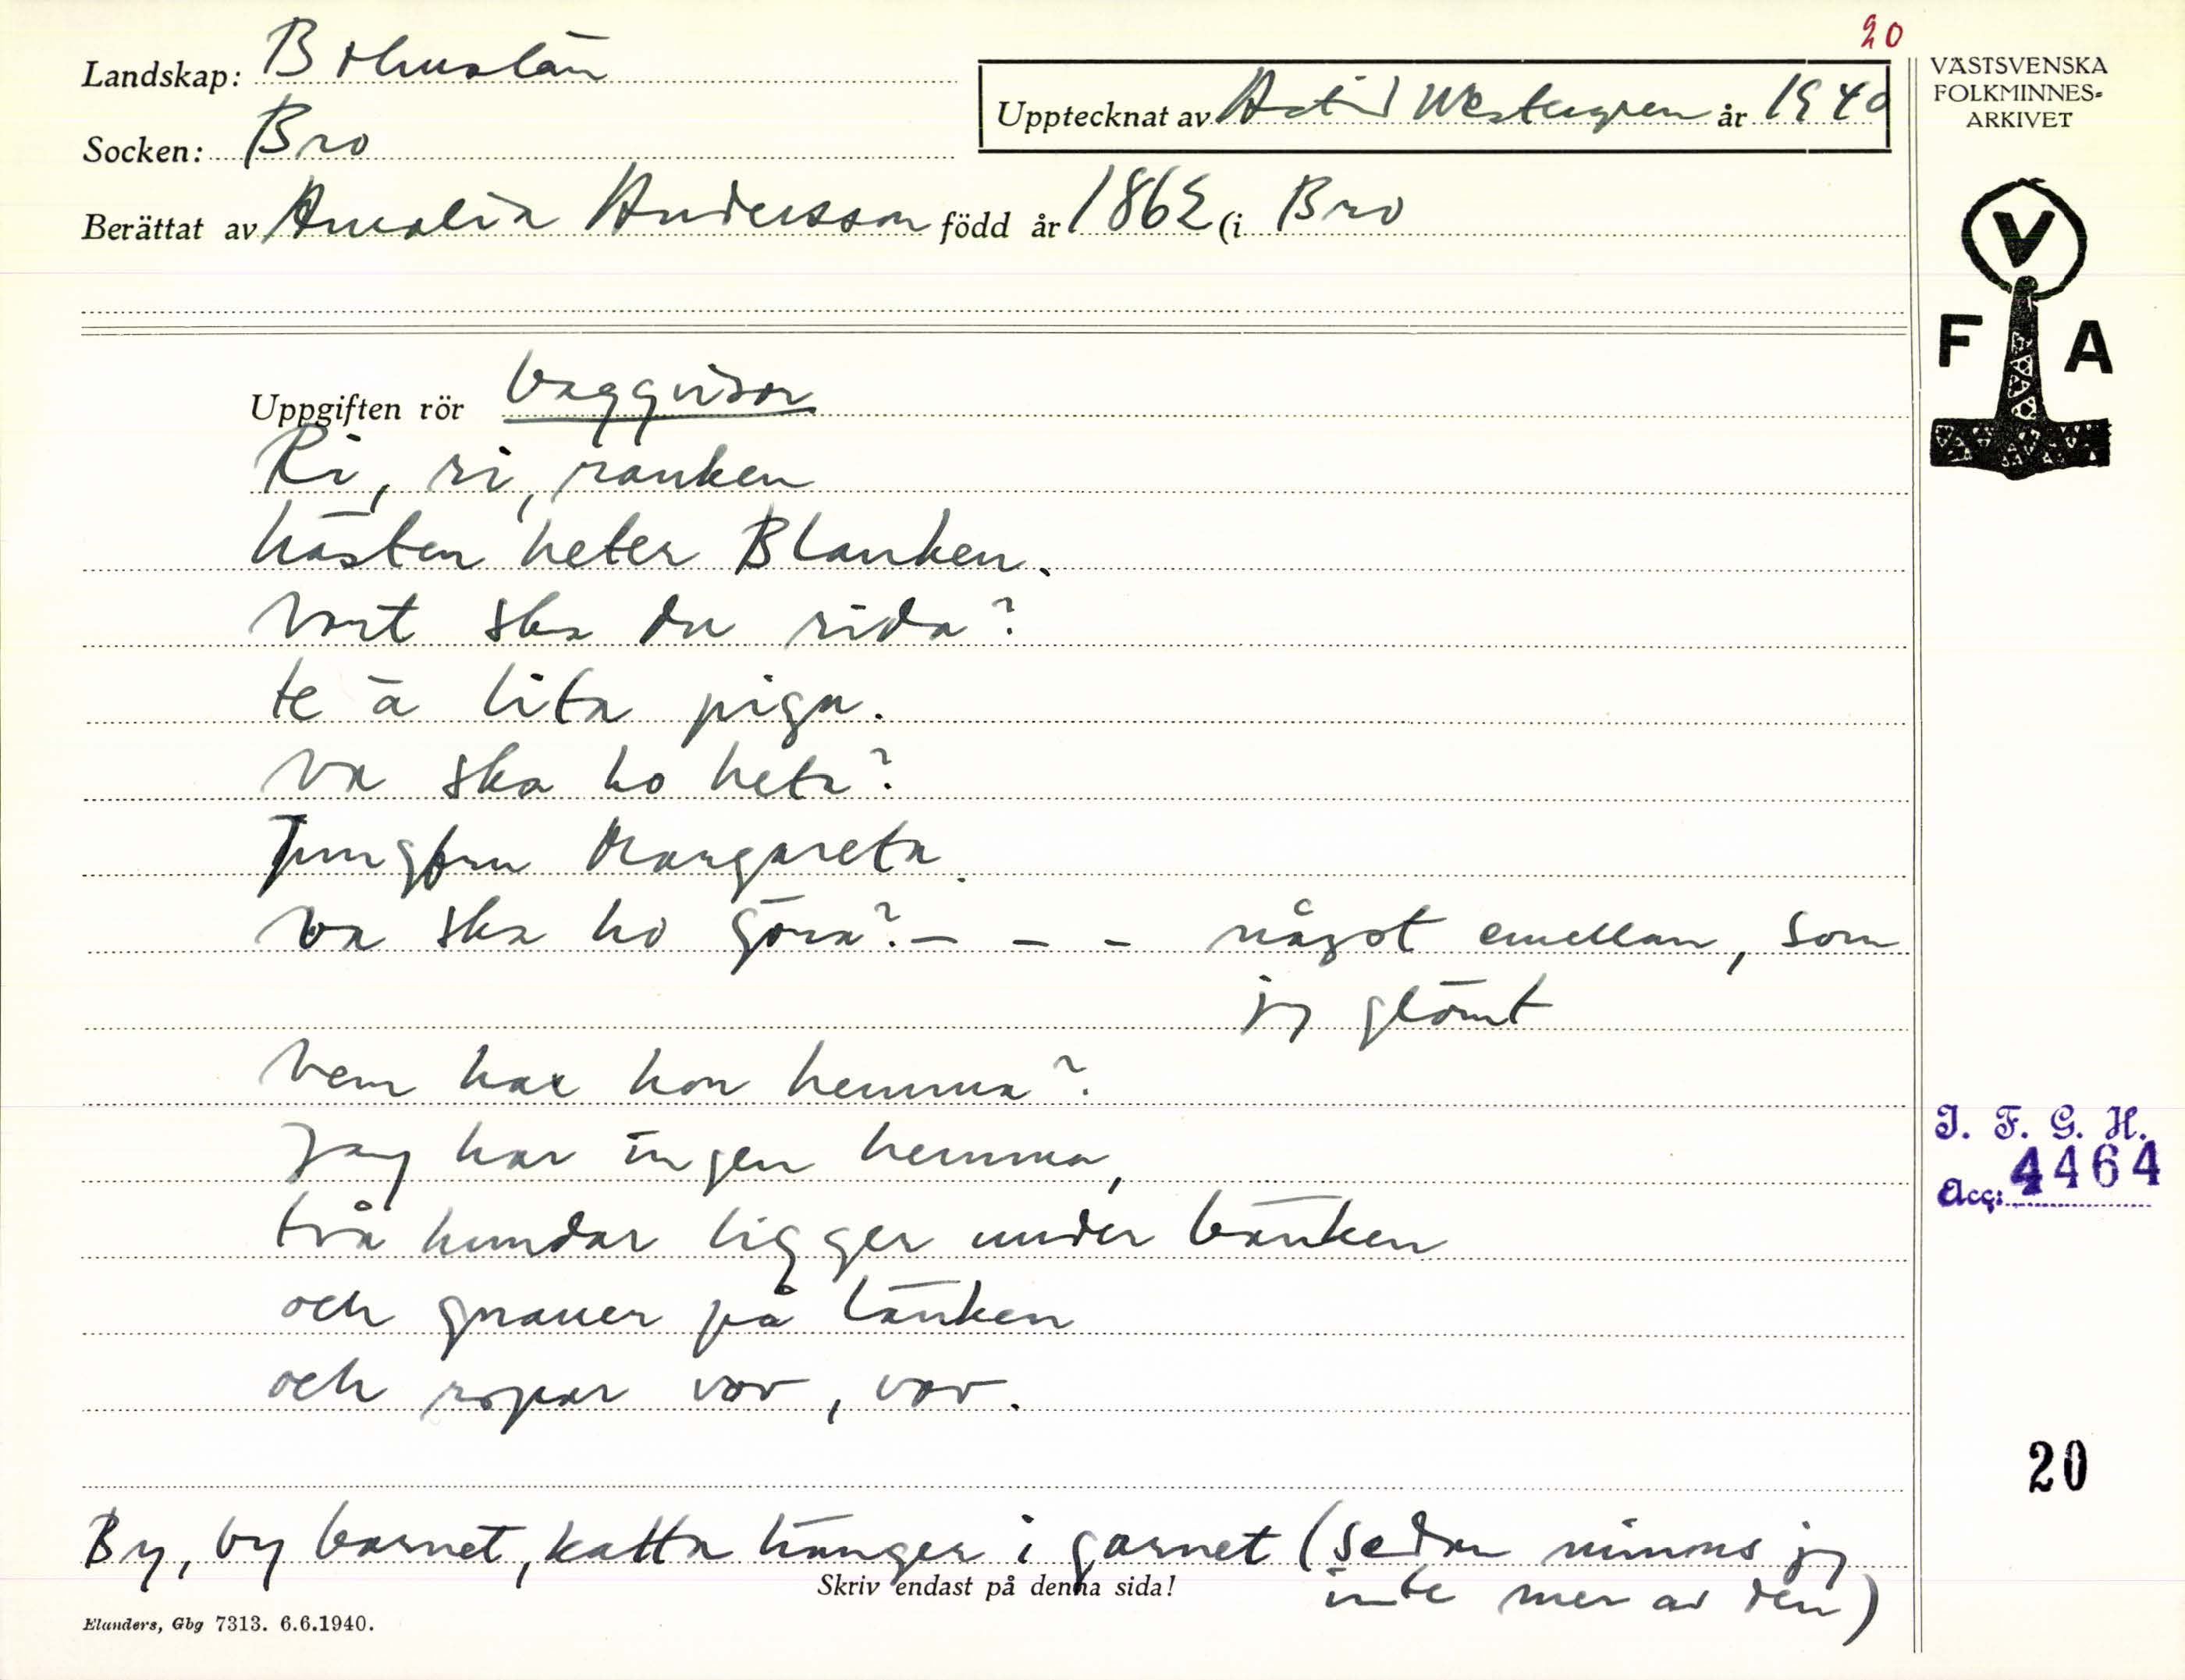 20
Landskap: Bohuslän
Upptecknat av Astrid Westergren år 1940
Socken: Bro
Berättat av Amalia Andersson född år 1862 (i Bro
VÄSTSVENSKA
FOLKMINNES-
ARKIVET
V
F A
Uppgiften rör Vaggvisor
Ri, ri, ranken
hästen heter Blanken.
Vart ska du rida?
te ä lita piga.
Va ska ho heta?
Jungfru Margareta.
Va ska ho göra? – – – något emellan, som
jag glömt
Vem har hon hemma?
Jag har ingen hemma,
två hundar ligger under bänken
och gnauer på länken
och ropar vov, vov.
By, by barnet, katta hänger i garnet (sedan minns jag
inte mer av den)
Skriv endast på denna sida!
Elanders, Gbg 7313. 6.6.1940.
I. F. G. H.
Acc: 4464
20